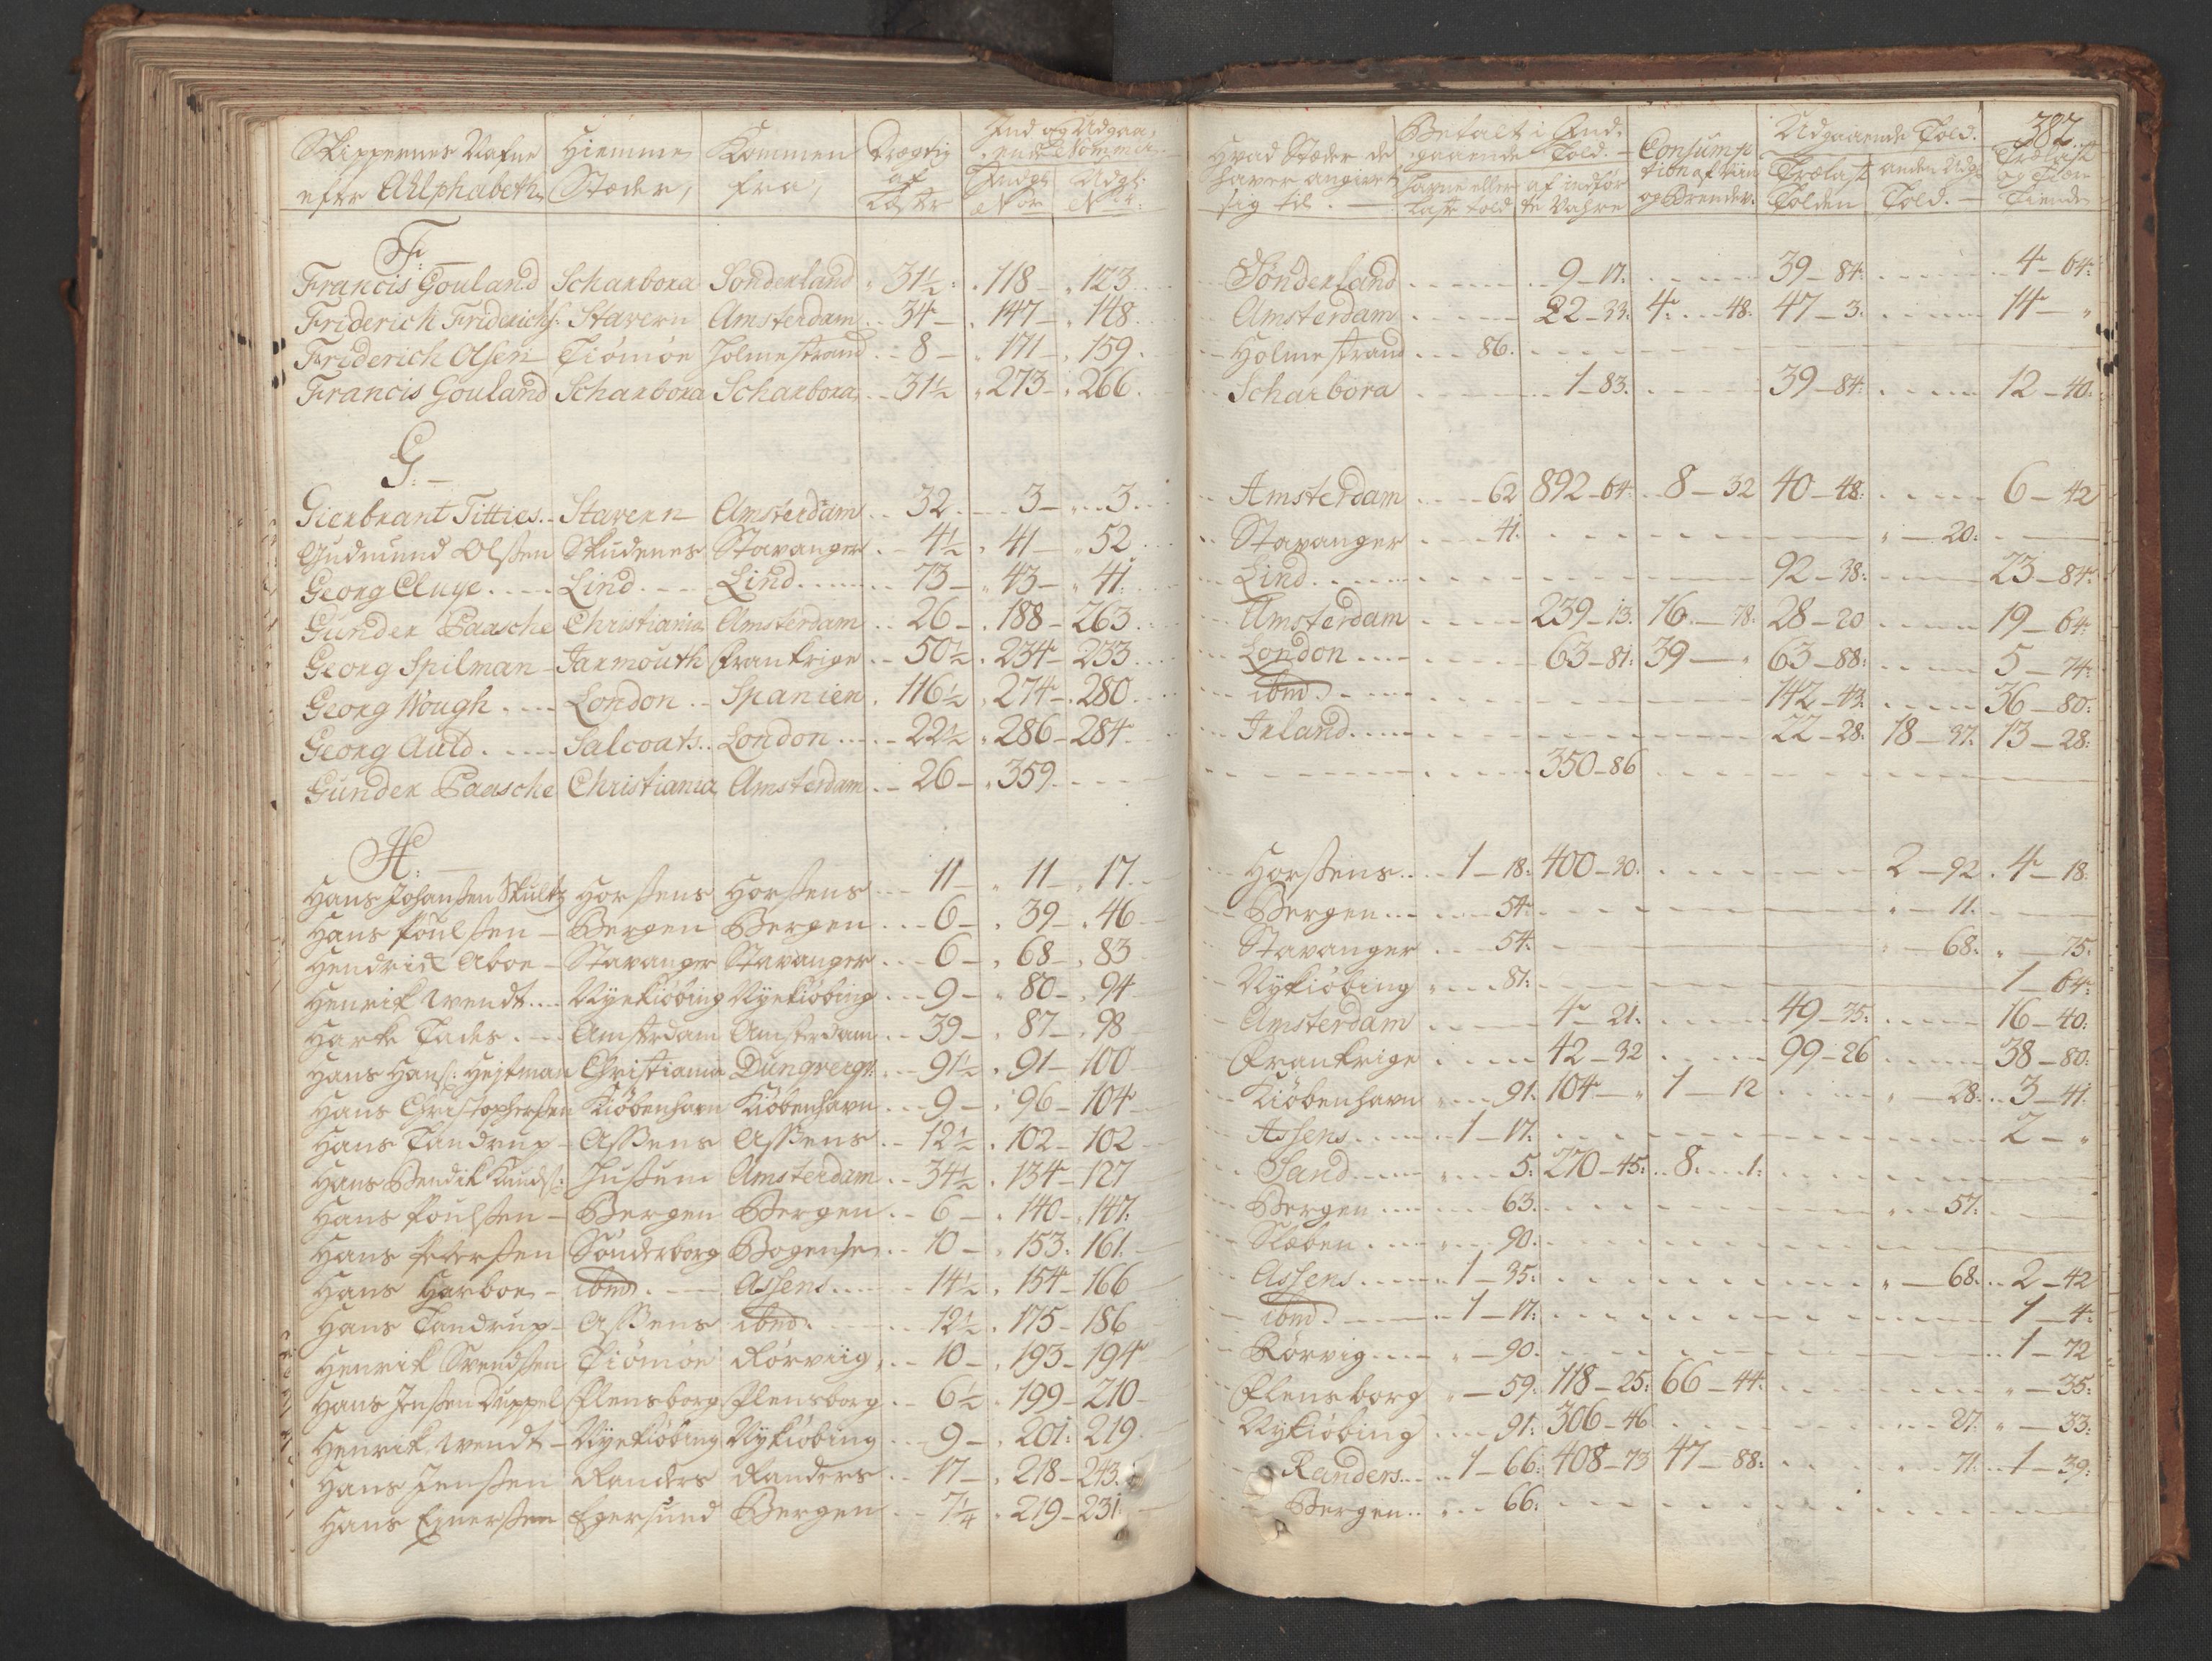 Skippernes Nafne | Hiemme | Kommen | Drægtig | Ind og Udgaa-
ende Nommer
efter Alphabeth | Stæder, | fra, | af Læster | Indg: No: | Udg: No:
F:
Francis Gouland | Scharbora | Sonderland | 31½ | 118 | 123
Friderich Friderichs: | Stavern | Amsterdam | 34 | 147 | 148
Friderich Olsen | Tiömöe | Holmestrand | 8 | 171 | 159
Francis Gouland | Scharbora | Scharbora | 31½ | 273 | 266
G:
Gierbrant Titties | Stavern | Amsterdam | 32 | 3 | 3
Gudmund Olssen | Skudenes | Stavanger | 4½ | 41 | 52
Georg Cluye | Lind | Lind | 73 | 43 | 41
Gunder Paasche | Christiania | Amsterdam | 26 | 188 | 263
Georg Spilman | Jarmouth | Frankrige | 50½ | 234 | 233
Georg Wough | London | Spanien | 116½ | 274 | 280
Georg Auld | Salcoats | London | 22½ | 286 | 284
Gunder Paasche | Christiania | Amsterdam | 26 | 359
H:
Hans Johanssen Skultz | Horssens | Horssens | 11 | 11 | 17
Hans Poulssen | Bergen | Bergen | 6 | 39 | 46
Hendrick Aboe | Stavanger | Stavanger | 6 | 68 | 83
Henrik Wendt | Nyekiöbing | Nyekiöbing | 9 | 80 | 94
Harke Tades | Amsterdam | Amsterdam | 39 | 87 | 98
Hans Hans: Hejtman | Christiania | Dungverge: | 91½ | 91 | 100
Hans Christophersen | Kiöbenhavn | Kiöbenhavn | 9 | 96 | 104
Hans Tandrup | Assens | Assens | 12½ | 102 | 102
Hans Bendik Knuds: | Hussum | Amsterdam | 34½ | 134 | 127
Hans Poulssen | Bergen | Bergen | 6 | 140 | 147
Hans Peterssen | Sönderborg | Bogense | 10 | 153 | 161
Hans Harboe | ibmd. | Assens | 14½ | 154 | 166
Hans Tandrup | Assens | ibmd. | 12½ | 175 | 186
Henrik Svendssen | Tiömöe | Rörviig | 10 | 193 | 194
Hans Jenssen Duppel | Flensborg | Flensborg | 6½ | 199 | 210
Henrik Wendt | Nyekiöbing | Nykiöbing | 9 | 201 | 219
Hans Jenssen | Randers | Randers | 17 | 218 | 243
Hans Ejnerssen | Egersund | Bergen | 7¼ | 219 | 231
382
Hvad Stæder de | Betalt i Ind- | Consump | Udgaaende Told. | Trælast
haver angivet | gaaende Told. | tion af Viin | Trælast | anden Udg: | og Tiøre
sig til. | Havne eller Laste told | af indför te Vahre | og Brendev: | Tolden | Told. | Tiende
Sönderland | 9-17 | 39-84 | 4-64
Amsterdam | 22-33 | 4-48 | 47-3 | 14-"
Holmestrand | 86
Scharbora | 1-83 | 39-84 | 12-40
Amsterdam | 62 | 892-64 | 8-32 | 40-48 | 6-42
Stavanger | 41 | "-20
Lind | 92-38 | 23-84
Amsterdam | 239-13 | 16-78 | 28-20 | 19-64
London | 63-81 | 39-" | 63-88 | 5-74
ibmd. | 142-43 | 36-80
Irland | 22-28 | 18-37 | 13-28
350-86
Horssens | 1-18 | 400-30 | 2-92 | 4-18
Bergen | 54 | "-11
Stavanger | 54 | "-68 | "-75
Nykiöbing | 81 | 1-64
Amsterdam | 4-21 | 49-35 | 16-40
Frankrige | 42-32 | 99-26 | 38-80
Kiöbenhavn | 91 | 104-" | 1-12 | "-28 | 3-41
Assens | 1-17 | 2-"
Sand | 5 | 270-45 | 8-1
Bergen | 63 | "-57
Slæben | 90
Assens | 1-35 | "-68 | 2-42
ibmd. | 1-17 | 1-4
Rörvig | "-90 | 1-72
Flensborg | "-59 | 118-25 | 66-44 | "-35
Nykiöbing | 91 | 306-46 | 27 | "-33
Randers | 1-66 | 408-73 | 47-88 | 71 | 1-39
Bergen | 66